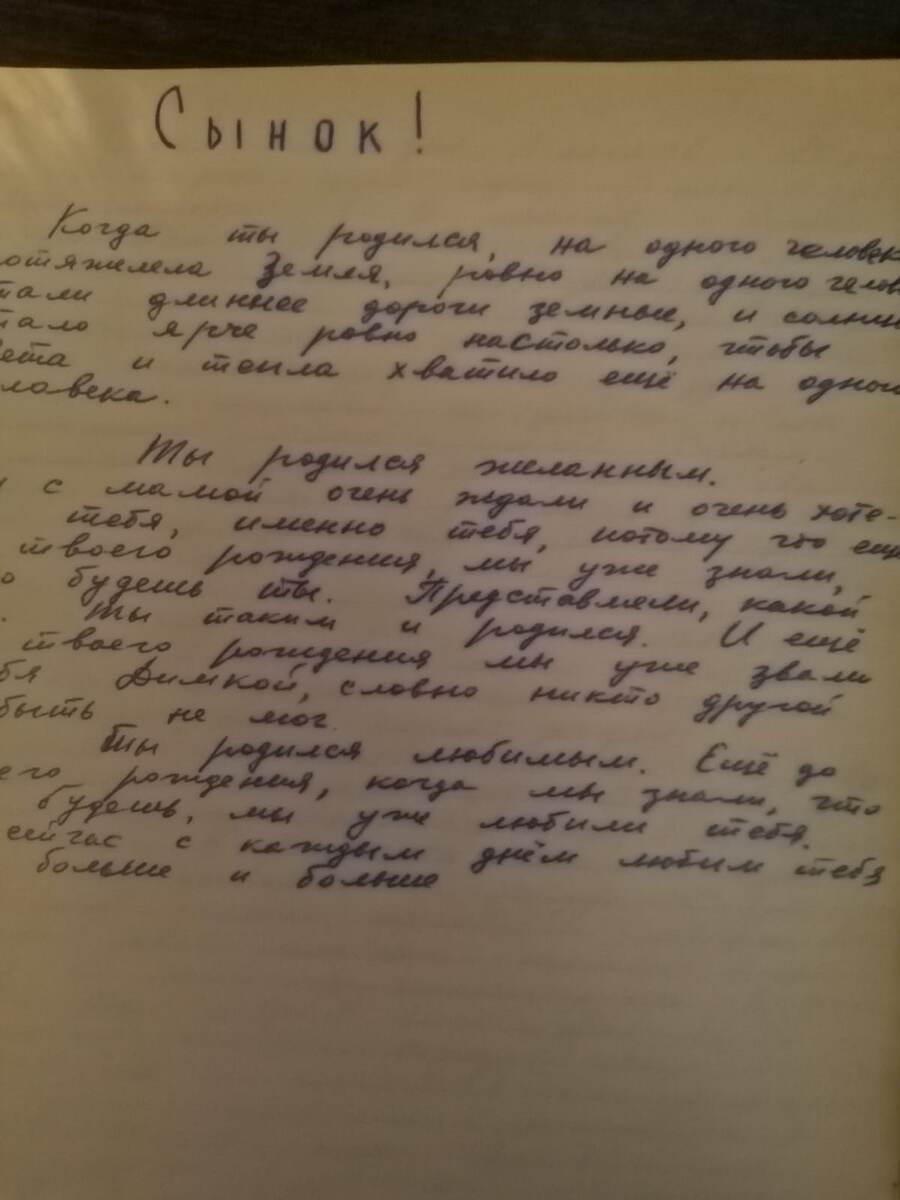 Сынок!
Когда ты родился, на одного человек
отяжелела Земля, ровно на одного челов
тали длиннее дороги земные, и солнц
тало ярче ровно настолько, чтобы
вета и тепла хватило ещё на одного
еловека.
Ты родился желанным.
с мамой очень ждали и очень хоте-
тебя, именно тебя, потому что ещё
твоего рождения, мы уже знали,
о будешь ты. Представляли, какой
. Ты таким и родился. И ещё
твоего рождения мы уже звали
бя Димкой, словно никто другой
быть не мог.
Ты родился любимым. Ещё до
его рождения, когда мы знали, что
будешь, мы уже любили тебя.
сейчас с каждым днём любим тебя
больше и больше